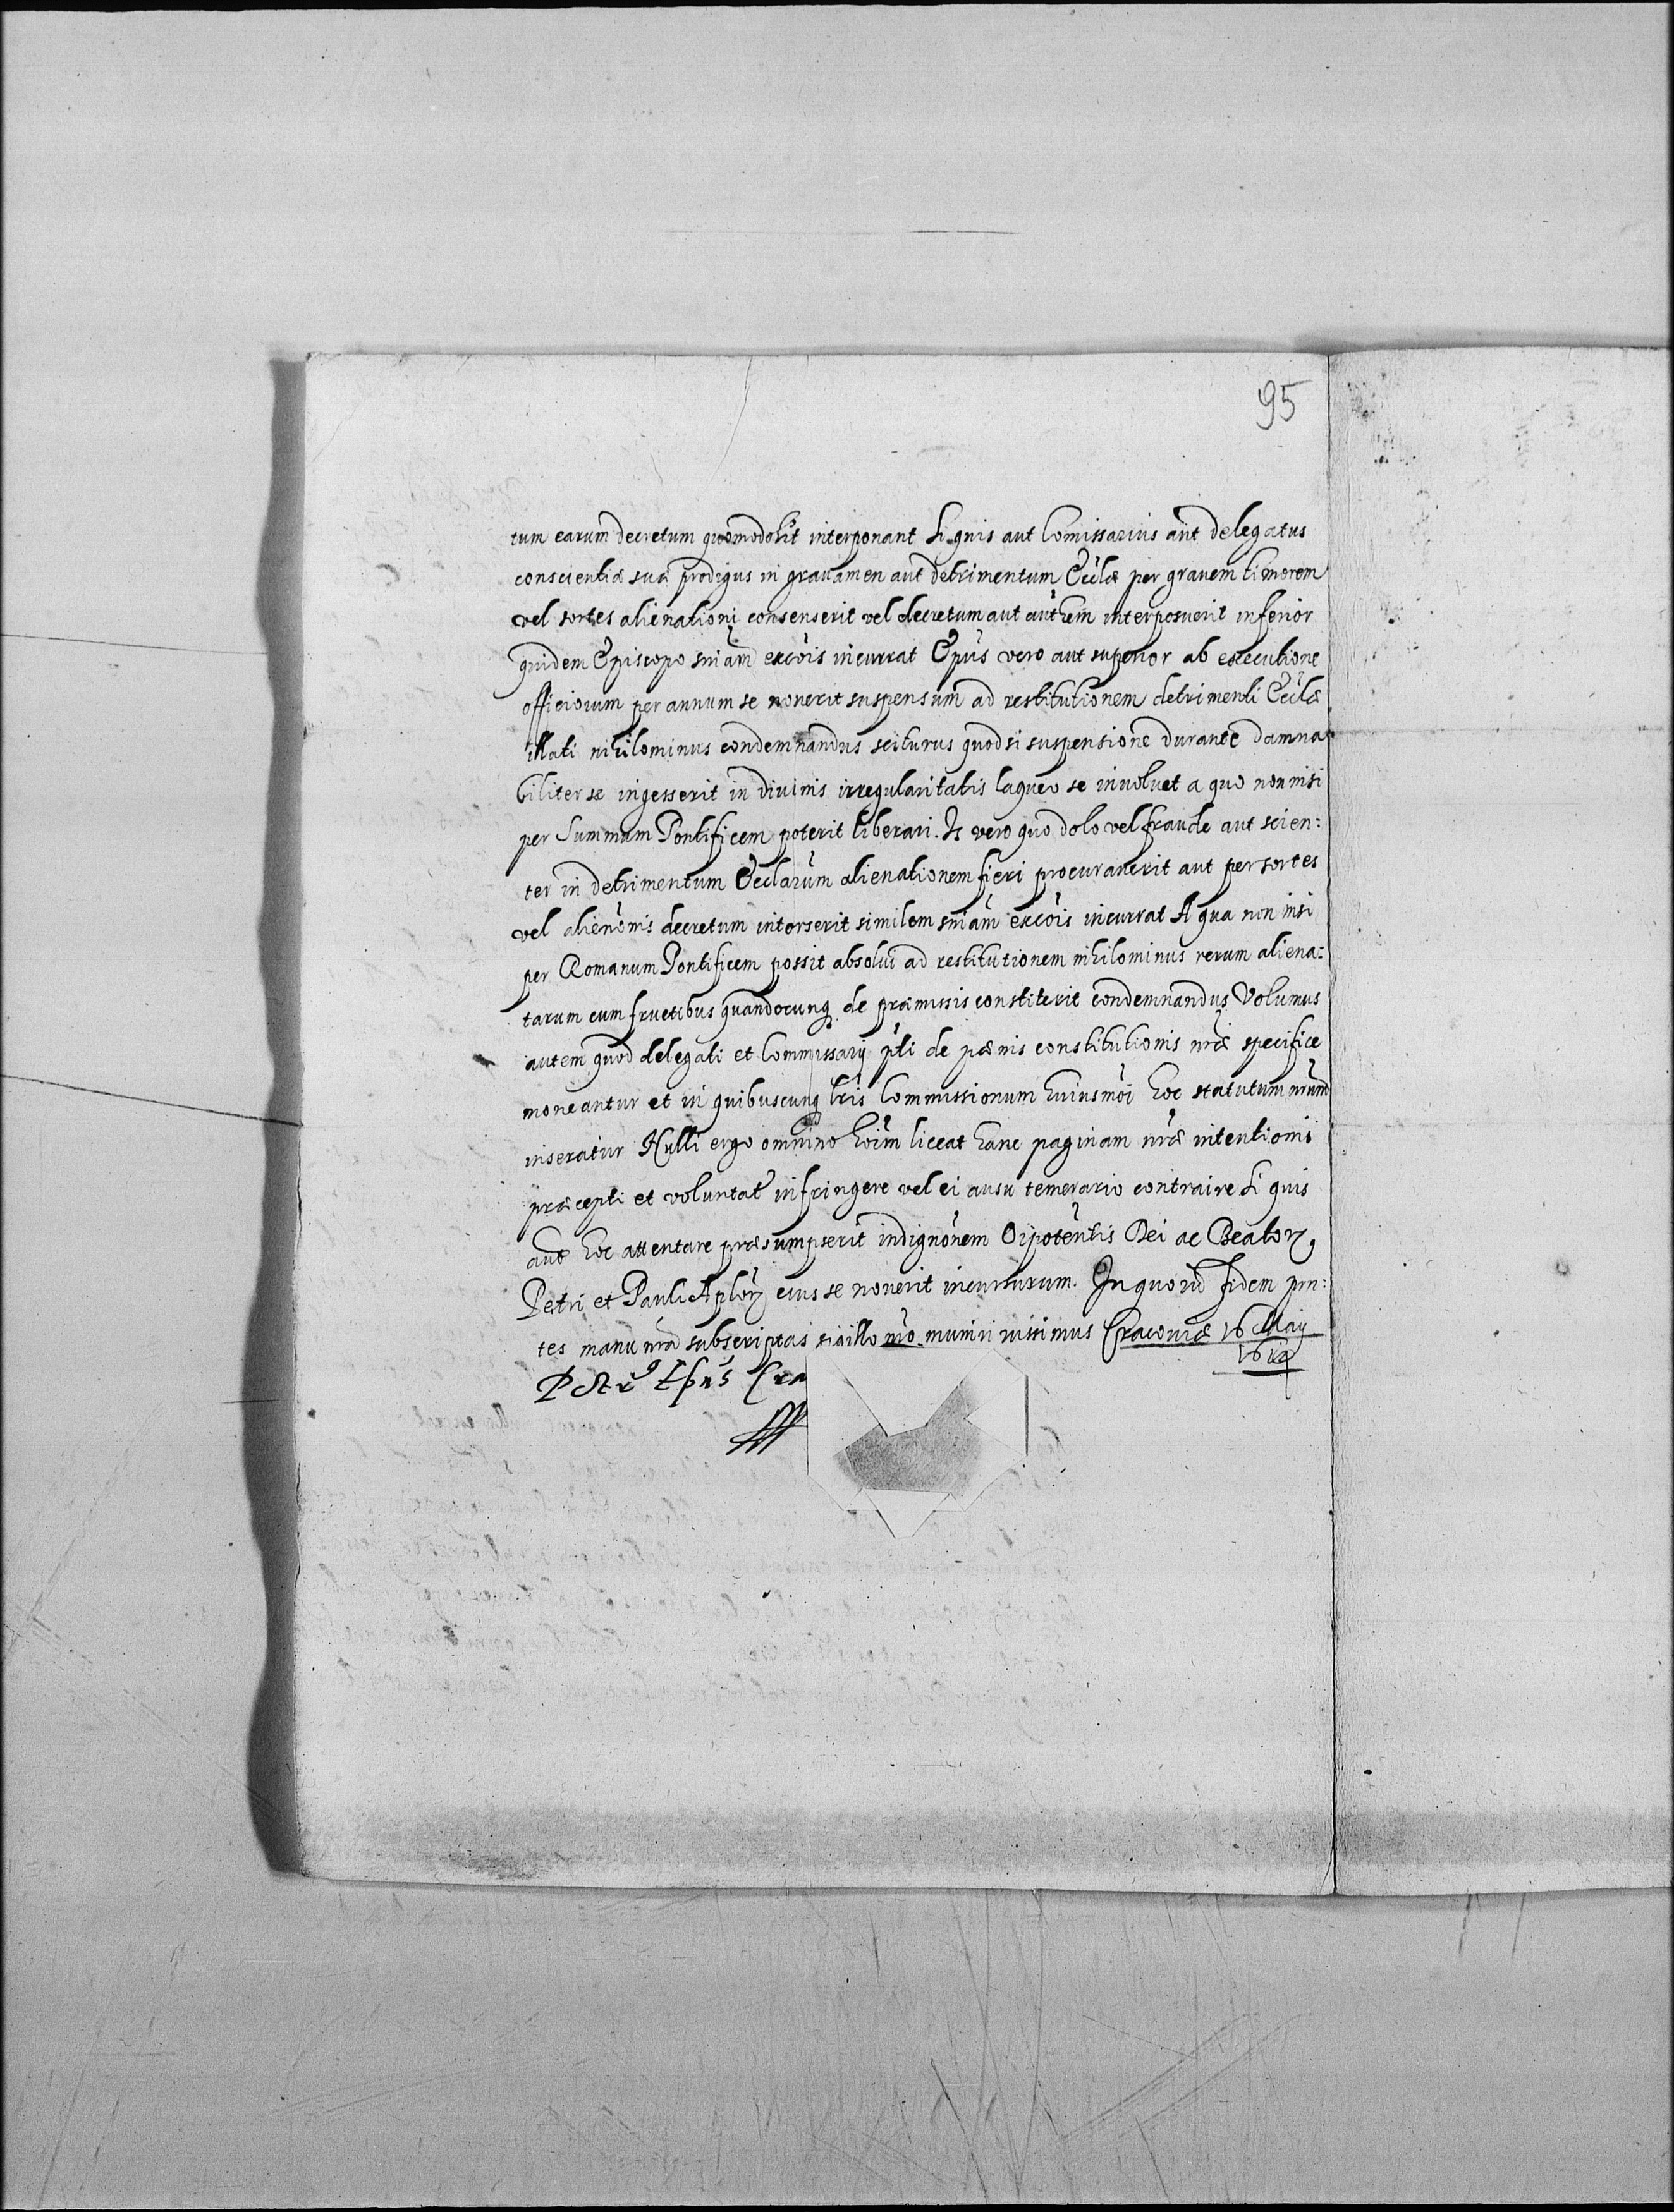 95
tum earum decretum quomodolt interponant Si quis aut Comissarius aut delegatus
conscientiæ suæ prodigus in grauamen aut detrimentum Eccłæ per grauem timorem
vel sortes alienationi consenserit vel decretum aut authem interposuerit inferior
quidem Episcopo sniam excois incurrat Epus vero aut superior ab executione
officiorum per annum se nouerit suspensum ad restitutionem detrimenti Eccłæ
illati nihilominus condemnandus sciturus quod si suspensione durante damna
biliter se ingesserit in diuinis irregularitatis laqueo se inuoluet a quo non nisi
per Summum Pontificem poterit liberari. Is vero quo dolo vel fraude aut scien:
ter in detrimentum Ecclarum alienationem fieri procurauerit aut per sortes
vel alienonis decretum intorserit similem sniam excois incurrat A qua non nisi
per Romanum Pontificem possit absolui ad restitutionem nihilominus rerum aliena:
tarum cum fructibus quandocunq de præmissis constiterit condemnandus Volumus
autem quod delegati et Commissarij pti de pænis constitutionis nræ specifice
moneantur et in quibuscunq lris Commissionum huiusmoi hoc statutum nrum
inseratur Nulli ergo omnino hoim liceat hanc paginam nræ intentioni
præcepti et voluntat infringere vel ei ausu temerario contraire Si quis
aut hoc attentare præsumpserit indignonem Oipotentis Dei ac Beator
Petri et Pauli Aplor eius se nouerit incursurum. In quorum fidem pnn:
tes manu nra subscriptas sigillo nro muniri iussimus Cracouiæ 16 Maij
Petr Epus Cra